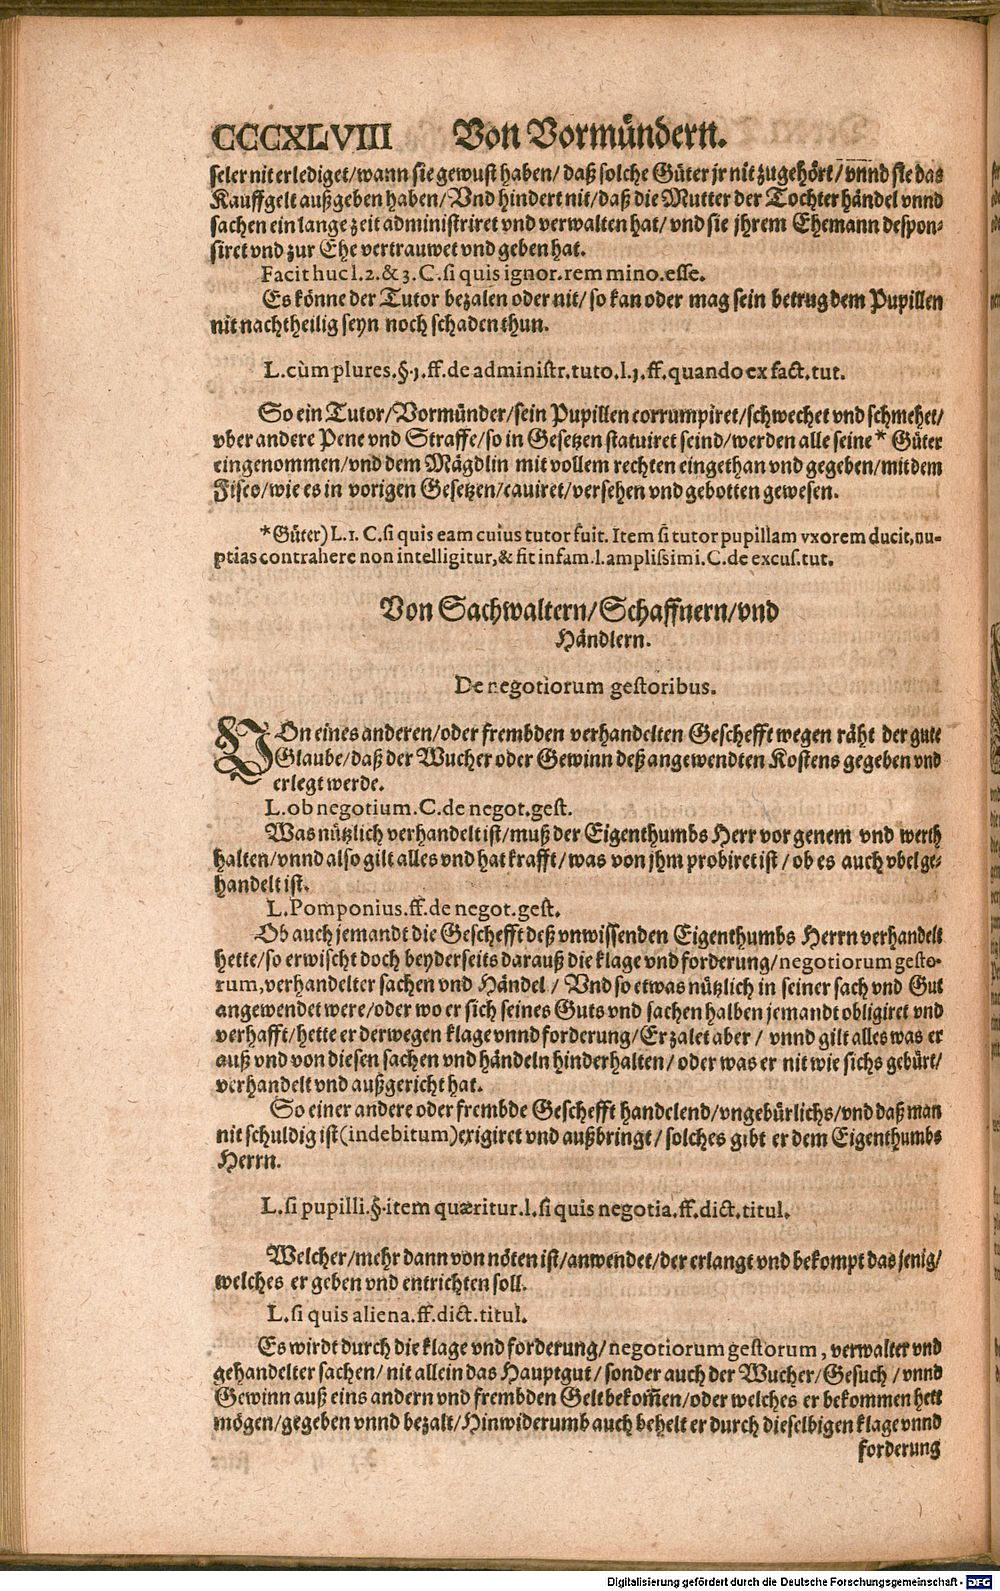 CCCXLVIII Von Vormündern.
seler nit erlediget/wann sie gewust haben/ daß solche Güter jr nit zugehört/ vnnd sie das
Kauffgelt außgeben haben/ Vnd hindert nit/ daß die Mutter der Tochter händel vnnd
sachen ein lange zeit administriret vnd verwalten hat/ vnd sie jhrem Ehemann despon-
siret vnd zur Ehe vertrauwet vnd geben hat.
Facit huc l. 2. & 3. C. si quis ignor. rem mino. esse.
Es könne der Tutor bezalen oder nit/ so kan oder mag sein betrug dem Pupillen
nit nachtheilig seyn noch schaden thun.
L. cùm plures. §. j. ff. de administr. tuto. l. j. ff. quando ex fact. tut.
So ein Tutor/ Vormünder/ sein Pupillen corrumpiret/ schwechet vnd schmehet/
vber andere Pene vnd Straffe/ so in Gesetzen statuiret seind/ werden alle seine * Güter
eingenommen/ vnd dem Mägdlin mit vollem rechten eingethan vnd gegeben/ mit dem
Fisco/ wie es in vorigen Gesetzen/ cauiret/ versehen vnd gebotten gewesen.
*Güter) L. 1. C. si quis eam cuius tutor fuit. Item si tutor pupillam vxorem ducit, nu-
ptias contrahere non intelligitur, & fit infam. l. amplissimi. C. de excus. tut.
Von Sachwaltern/ Schaffnern/ vnd
Händlern.
De negotiorum gestoribus.
VOn eines anderen/ oder frembden verhandelten Geschefft wegen räht der gute
Glaube/ daß der Wucher oder Gewinn deß angewendten Kostens gegeben vnd
erlegt werde.
L. ob negotium. C. de negot. gest.
Was nützlich verhandelt ist/ muß der Eigenthumbs Herr vor genem vnd werth
halten/ vnnd also gilt alles vnd hat krafft/ was von jhm probiret ist/ ob es auch vbel ge-
handelt ist.
L. Pomponius. ff. de negot. gest.
Ob auch jemandt die Geschefft deß vnwissenden Eigenthumbs Herrn verhandelt
hette/ so erwischt doch beyderseits darauß die klage vnd forderung/ negotiorum gesto-
rum, verhandelter sachen vnd Händel/ Vnd so etwas nützlich in seiner sach vnd Gut
angewendet were/ oder wo er sich seines Guts vnd sachen halben jemandt obligiret vnd
verhafft/ hette er derwegen klage vnnd forderung/ Er zalet aber/ vnnd gilt alles was er
auß vnd von diesen sachen vnd händeln hinderhalten/ oder was er nit wie sichs gebürt/
verhandelt vnd außgericht hat.
So einer andere oder frembde Geschefft handelend/ vngebürlichs/ vnd daß man
nit schuldig ist (indebitum) exigiret vnd außbringt/ solches gibt er dem Eigenthumbs
Herrn.
L. si pupilli. §. item quæritur. l. si quis negotia. ff. dict. titul.
Welcher/ mehr dann von nöten ist/ anwendet/ der erlangt vnd bekompt das jenig/
welches er geben vnd entrichten soll.
L. si quis aliena. ff. dict. titul.
Es wirdt durch die klage vnd forderung/ negotiorum gestorum, verwalter vnd
gehandelter sachen/ nit allein das Hauptgut/ sonder auch der Wucher/ Gesuch/ vnnd
Gewinn auß eins andern vnd frembden Gelt bekom̃en/ oder welches er bekommen hett
mögen/ gegeben vnnd bezalt/ Hinwiderumb auch behelt er durch dieselbigen klage vnnd
forderung
Digitalisierung gefördert durch die Deutsche Forschungsgemeinschaft - DFG